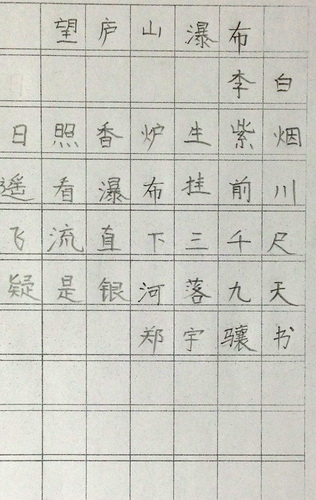 望庐山瀑布
李白
日照香炉生紫烟
遥看瀑布挂前川
飞流直下三千尺
疑是银河落九天
郑宇骧书